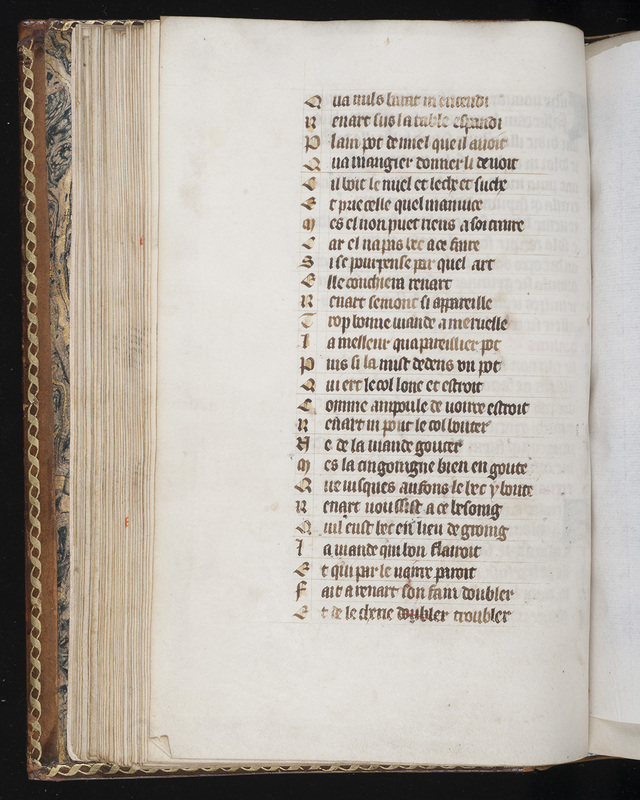 Q ua nuls barat ni entendi
R enart sus la table espandi
P lain pot de miel que il auoit
Q ua mangier donner li deuoit
C il boit le miel et leche et suche
E t prie celle quel maniuce
M es el non puet riens a soi traire
C ar el na pas bec a ce faire
S i se pourpense par quel art
E lle conchiera renart
R enart semont si appareille
T rop bonne uiande a meruelle
L a meilleur qua pareillier pot
P uis si la mist dedens un pot
Q ui ert le col lonc et estroit
C omme ampoule de uoirre estroit
R enart ni pout le col bouter
N e de la uiande gouter
M es la cingoingne bien en goute
Q ue iusques au fons le bec y boute
R enart uousist a ce besoing
Q uil eust bec en lieu de groing
L a uiande qui bon flairoit
E t qui par le uoirre paroit
F ait a renart son faim doubler
E t de lecherie doubler troubler